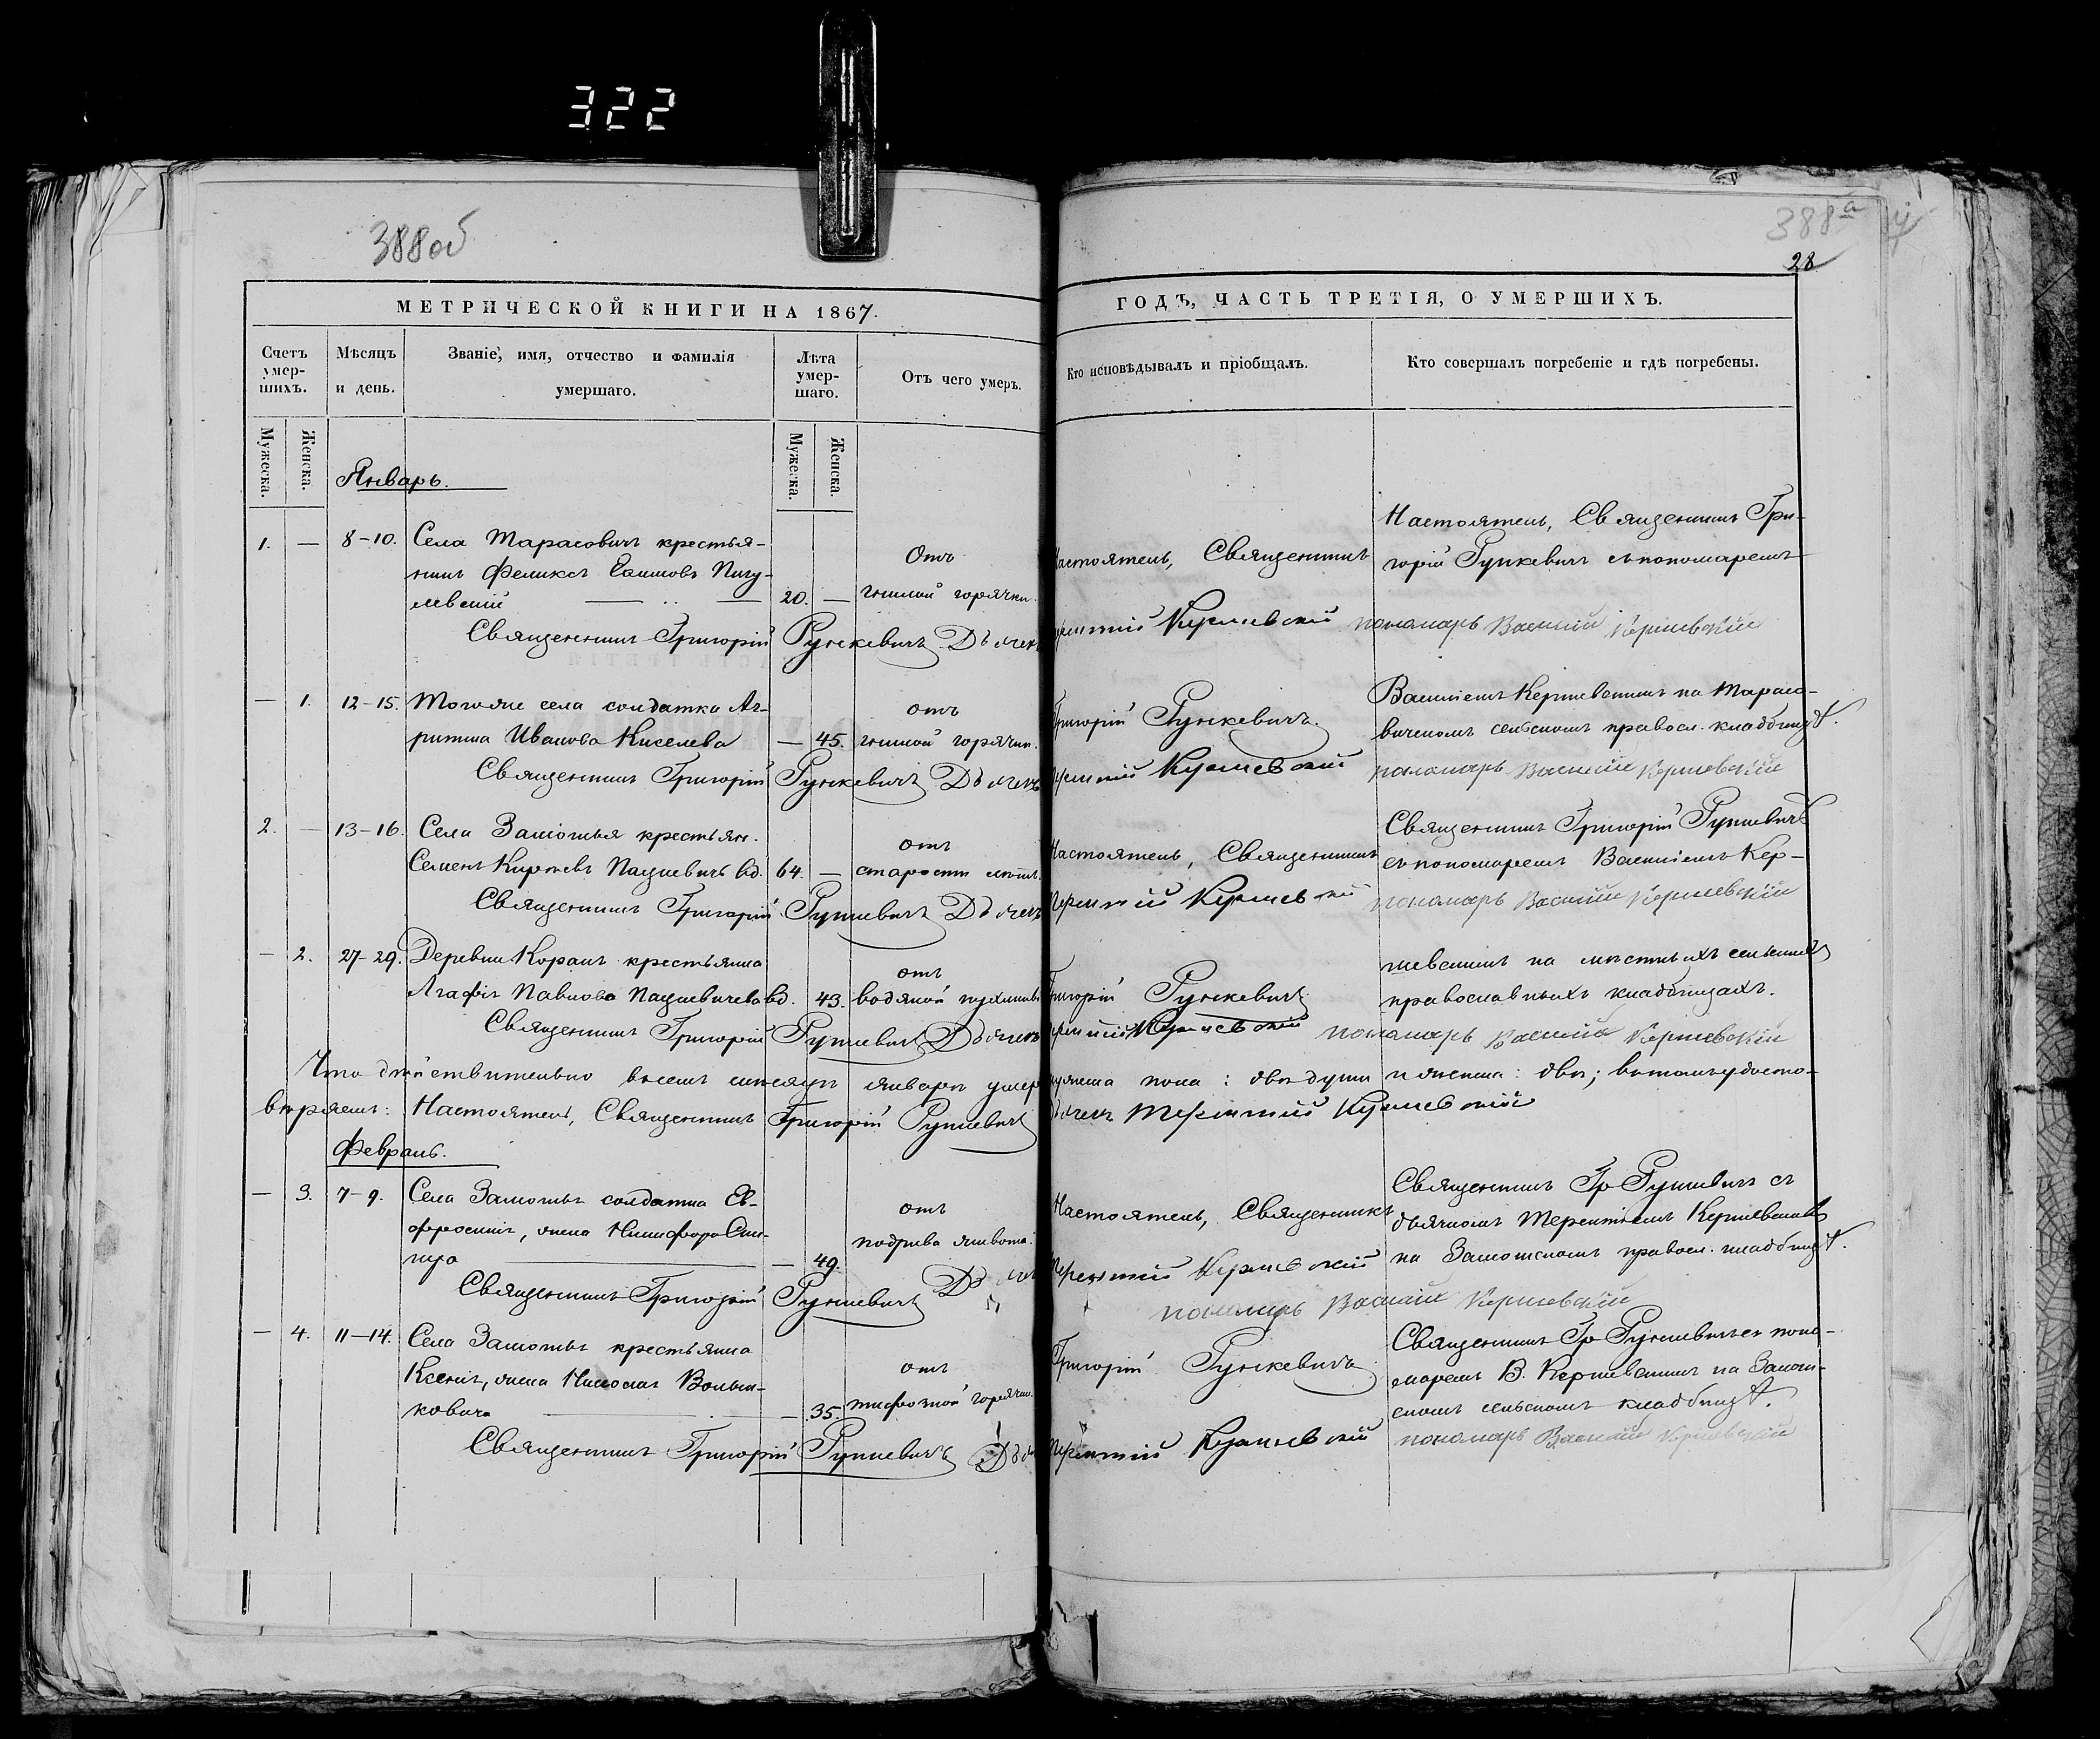 322
388об
388а
28
МЕТРИЧЕСКОЙ КНИГИ НА 1867.
ГОДЪ, ЧАСТЬ ТРЕТІЯ, О УМЕРШИХЪ.
Счетъ умер-
шихъ.
Мѣсяцъ
и день.
Званіе, имя, отчество и фамилія
умершаго.
Лѣта
умер-
шаго.
Отъ чего умеръ.
Кто исповѣдывалъ и пріобщалъ.
Кто совершалъ погребеніе и гдѣ погребены.
Мужеска.
Женска.
Мужеска.
Женска.
Январь.
1. — 8-10. Села Тарасовичъ крестья-
нинъ Феликсъ
левскій 20. —
Отъ
гнилой горячки.
Настоятель, Священникъ
Настоятель, Священникъ Гри-
горій Рункевичъ съ пономаремъ
Священникъ Григорій Рункевичъ Дьячекъ
Терентій Керпиевскій пономарь Василій
— 1. 12-15. Тогоже села солдатка Аг-
рипина Иванова Киселева — 45.
отъ
гнилой горячки.
Григорій Рункевичъ.
Василіемъ на Тарасо-
вичскомъ сельскомъ правосл. кладбищѣ.
Священникъ Григорій Рункевичъ Дьячекъ
Терентій пономарь Василій
2. — 13-16. Села Замошья крестьян.
Семенъ вд. 64. —
отъ
старости лѣтъ.
Настоятель, Священникъ
Священникъ Григорій Рункевичъ
съ пономаремъ Василіемъ
Священникъ Григорій Рункевичъ Дьячекъ
Терентій пономарь Василій
— 2. 27-29. Деревни крестьянка
Агафія Павлова вд. 43.
отъ
водяной
Григорій Рункевичъ
на мѣстныхъ сельскихъ
православныхъ кладбищахъ.
Священникъ Григорій Рункевичъ Дьячекъ
Терентій пономарь Василій
Что дѣйствительно въ семъ мѣсяцѣ январѣ умерло мужеска пола: двѣ души и женска: двѣ; въ томъ удосто-
вѣряемъ: Настоятель, Священникъ Григорій Рункевичъ Дьячекъ Терентій
Февраль.
— 3. 7-9. Села Замошья солдатка Ев-
фросинія, жена Никифора
— 49.
отъ
подрыва живота.
Настоятель, Священникъ
Священникъ Гр Рункевичъ съ
дьячкомъ Терентіемъ
на Замошскомъ правосл. кладбищѣ.
Священникъ Григорій Рункевичъ
Терентій
пономарь Василій
— 4. 11-14. Села Замошья крестьянка
Ксенія, жена Николая
— 35.
отъ
тифозной горячки.
Григорій Рункевичъ
Священникъ Гр Рункевичъ съ поно-
маремъ В. на Замош-
скомъ сельскомъ кладбищѣ.
Священникъ Григорій Рункевичъ
Терентій пономарь Василій